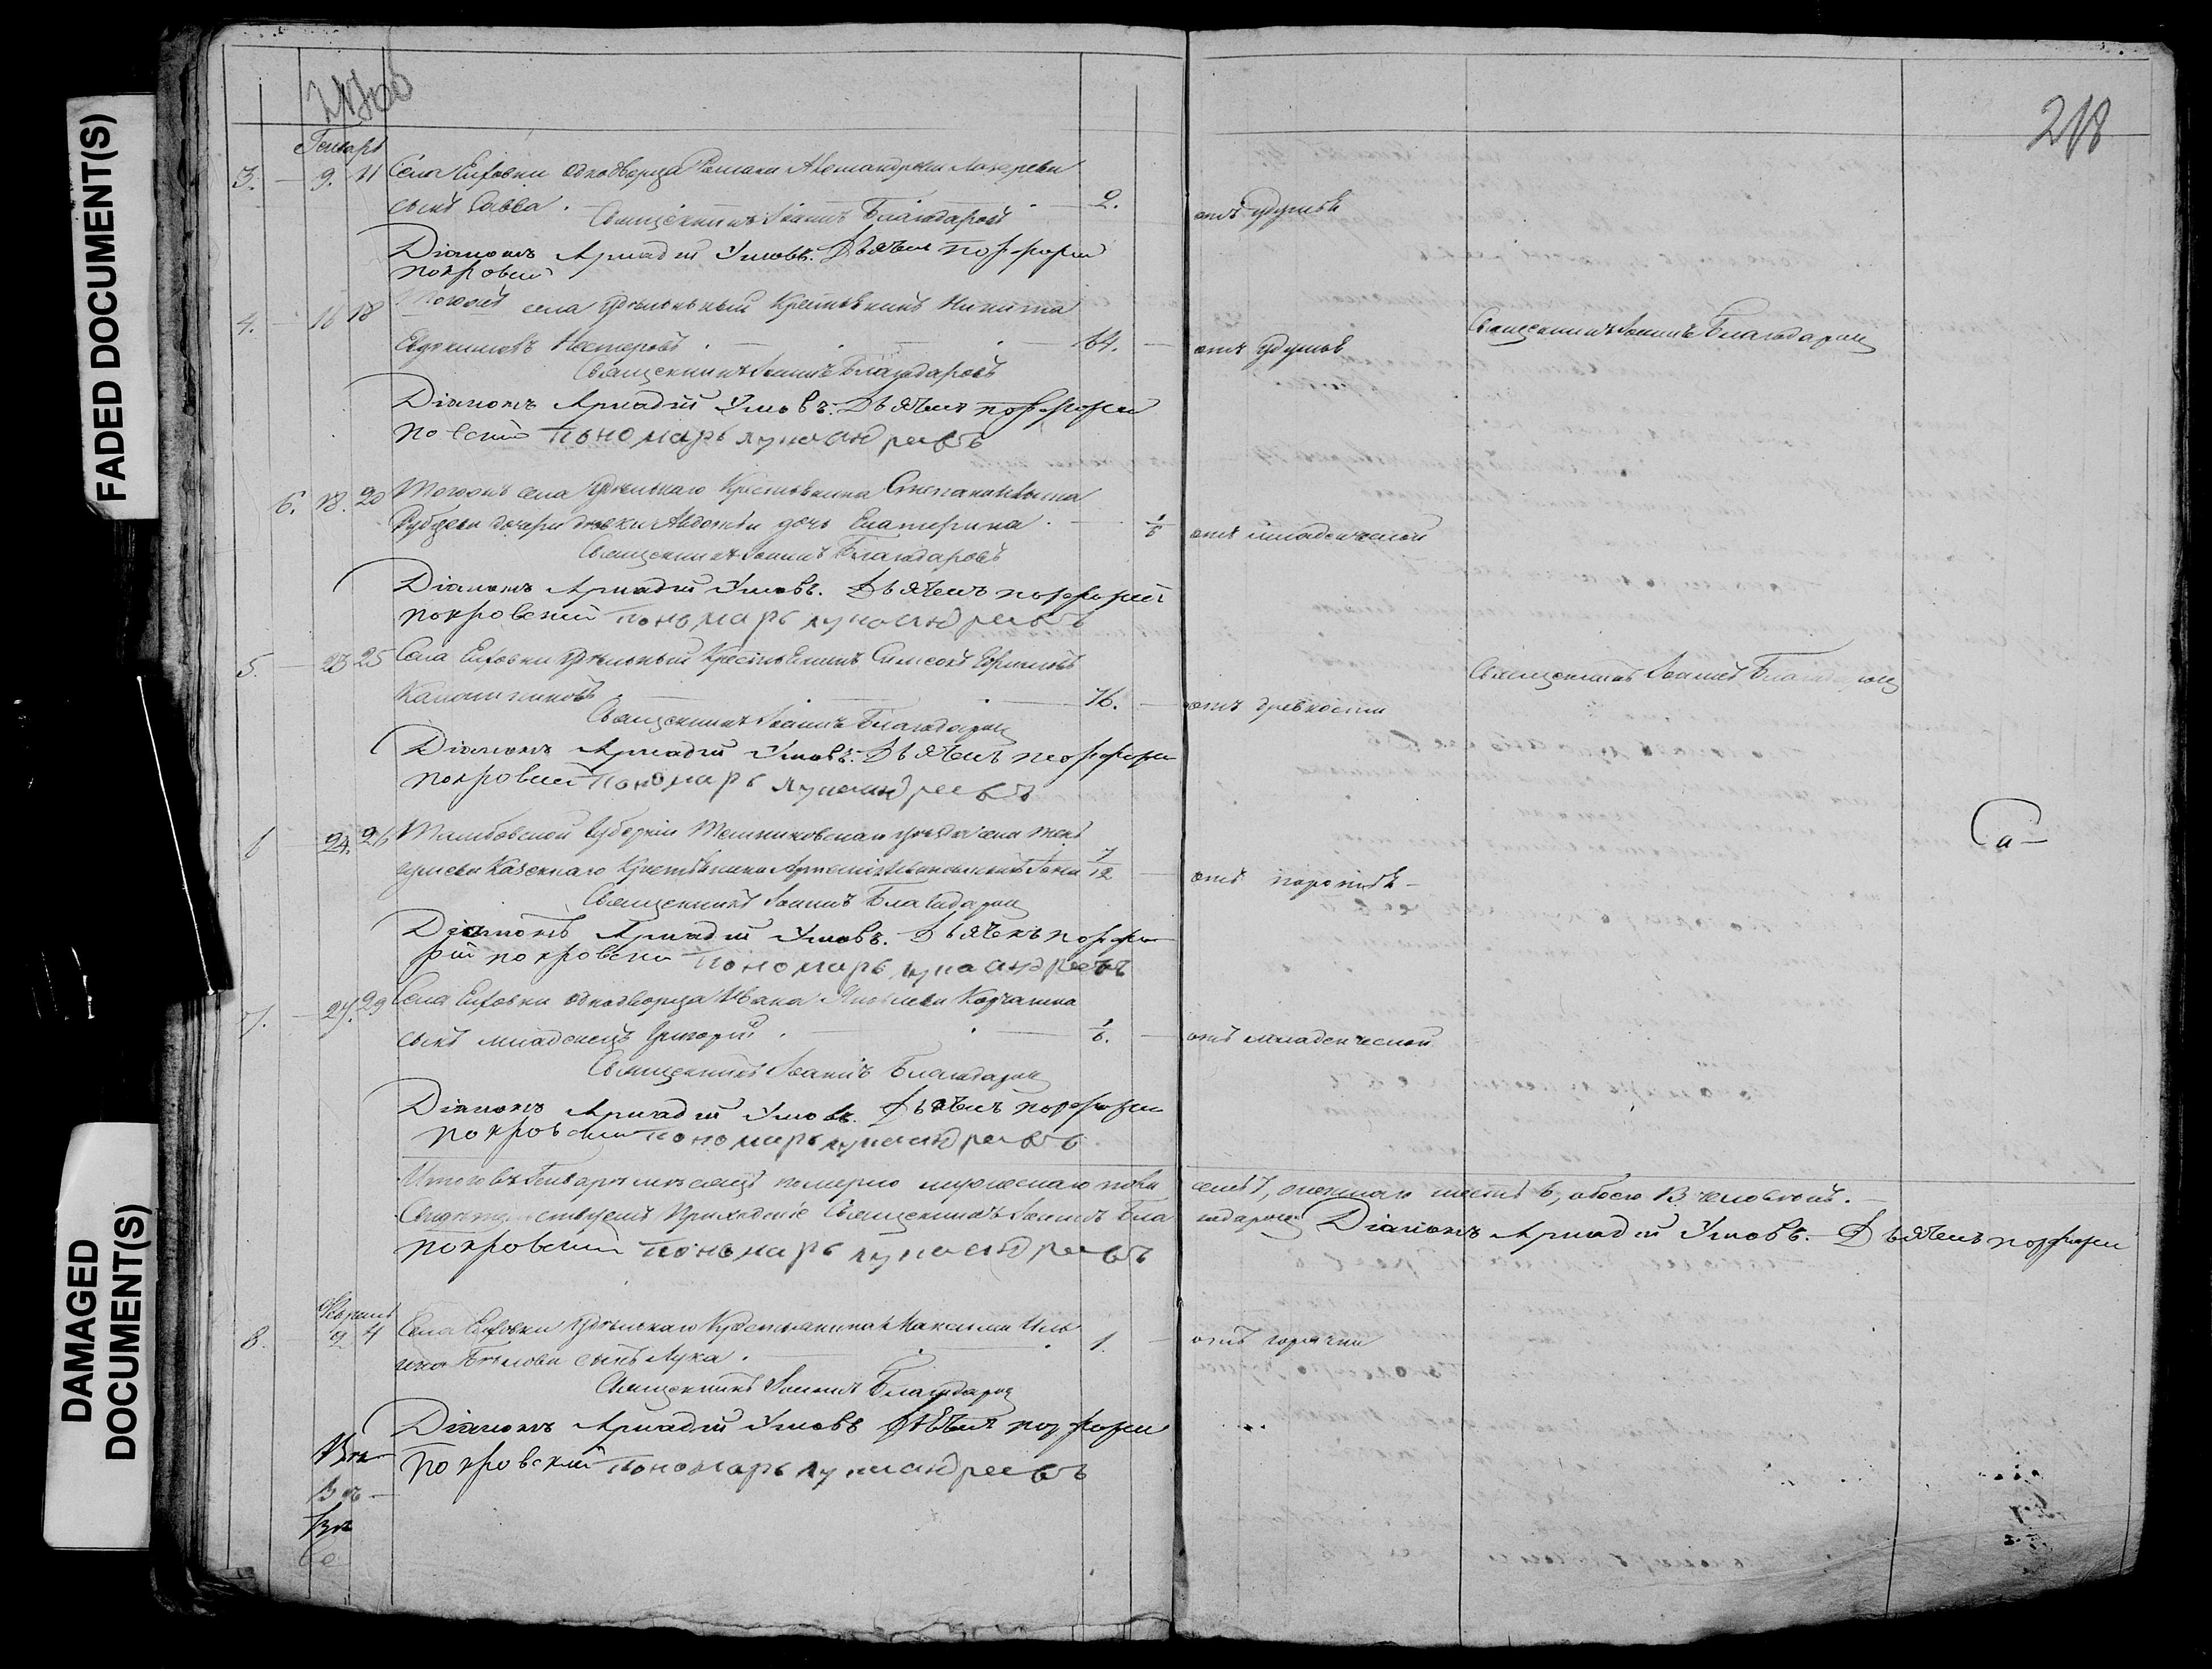 FADED DOCUMENT(S)
DAMAGED
DOCUMENT(S)
218
Генварь
3. 9. 11 Села Елховки однодворца Романа Александрова Лазарева
сынъ Савва. 2. отъ удушья
Священникъ Іоаннъ Благодаровъ
Діаконъ Аркадій Умовъ. Дьячекъ порфирій
покровскій
4. 16 18 Тогожъ села удѣльный Крестьянинъ Никита
Евдокимовъ Нестеровъ. 64. отъ удушья Священникъ Іоаннъ Благодаровъ
Священникъ Іоаннъ Благодаровъ
Діаконъ Аркадій Умовъ. Дьячекъ порфирій
пономарь лука андреевъ
6. 18. 20 Тогожъ села удѣльнаго Крестьянина Степана
дочери дѣвки Авдотьи дочь Екатерина. 1/6 отъ младенческой
Священникъ Іоаннъ Благодаровъ
Діаконъ Аркадій Умовъ. Дьячекъ порфирій
покровский пономарь лука андреевъ
5. 23 25 Села Елховки удѣльный Крестьянинъ Симеонъ Ефимовъ
76. отъ древности Священникъ Іоаннъ Благодаровъ
Священникъ Іоаннъ Благодаровъ
Діаконъ Аркадій Умовъ. Дьячекъ порфирій
покровскій пономарь лука андреевъ
6 24. 26 Тамбовской Губерніи Темниковскаго уѣзда села
Казеннаго Крестьянина сынъ 7/12 отъ
Священникъ Іоаннъ Благодаровъ
Діаконъ Аркадій Умовъ. Дьячекъ порфи
рій покровскій пономарь лука андреевъ
7. 27. 29 Села Елховки однодворца Ивана Яковлева
сынъ младенецъ Григорій. 1/6. отъ младенческой
Священникъ Іоаннъ Благодаровъ
Діаконъ Аркадій Умовъ. Дьячекъ порфирій
покровскій пономарь лука андреевъ
Итого въ Генварѣ мѣсяцѣ померло мужескаго пола семь 7, женскаго шесть 6, обоего 13 человѣкъ.
Свидѣтельствуетъ Священникъ Іоаннъ Благодаровъ Діаконъ Аркадій Умовъ. Дьячекъ порфирій
покровскій пономарь лука андреевъ
Февраль
8. 2 4 Села Елховки удѣльнаго Крестьянина Максима Иль
ина Бѣлова сынъ Лука. 1. отъ горячки
Священникъ Іоаннъ Благодаровъ
Діаконъ Аркадій Умовъ Дьячекъ порфирій
Покровскій пономарь лука андреевъ